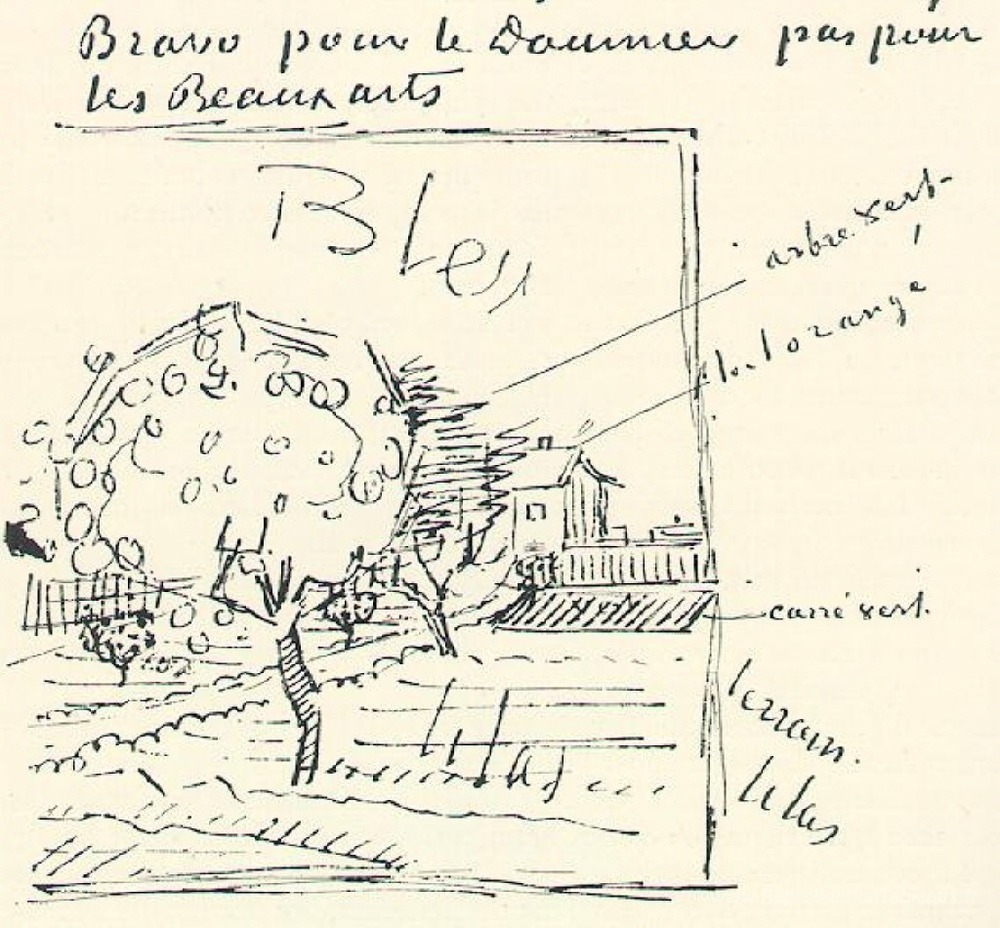 Bravo pour le Daumier pas pour
les Beaux arts
Bleu
arbre vert
toit orangé
carré vert.
terrain.
lilas